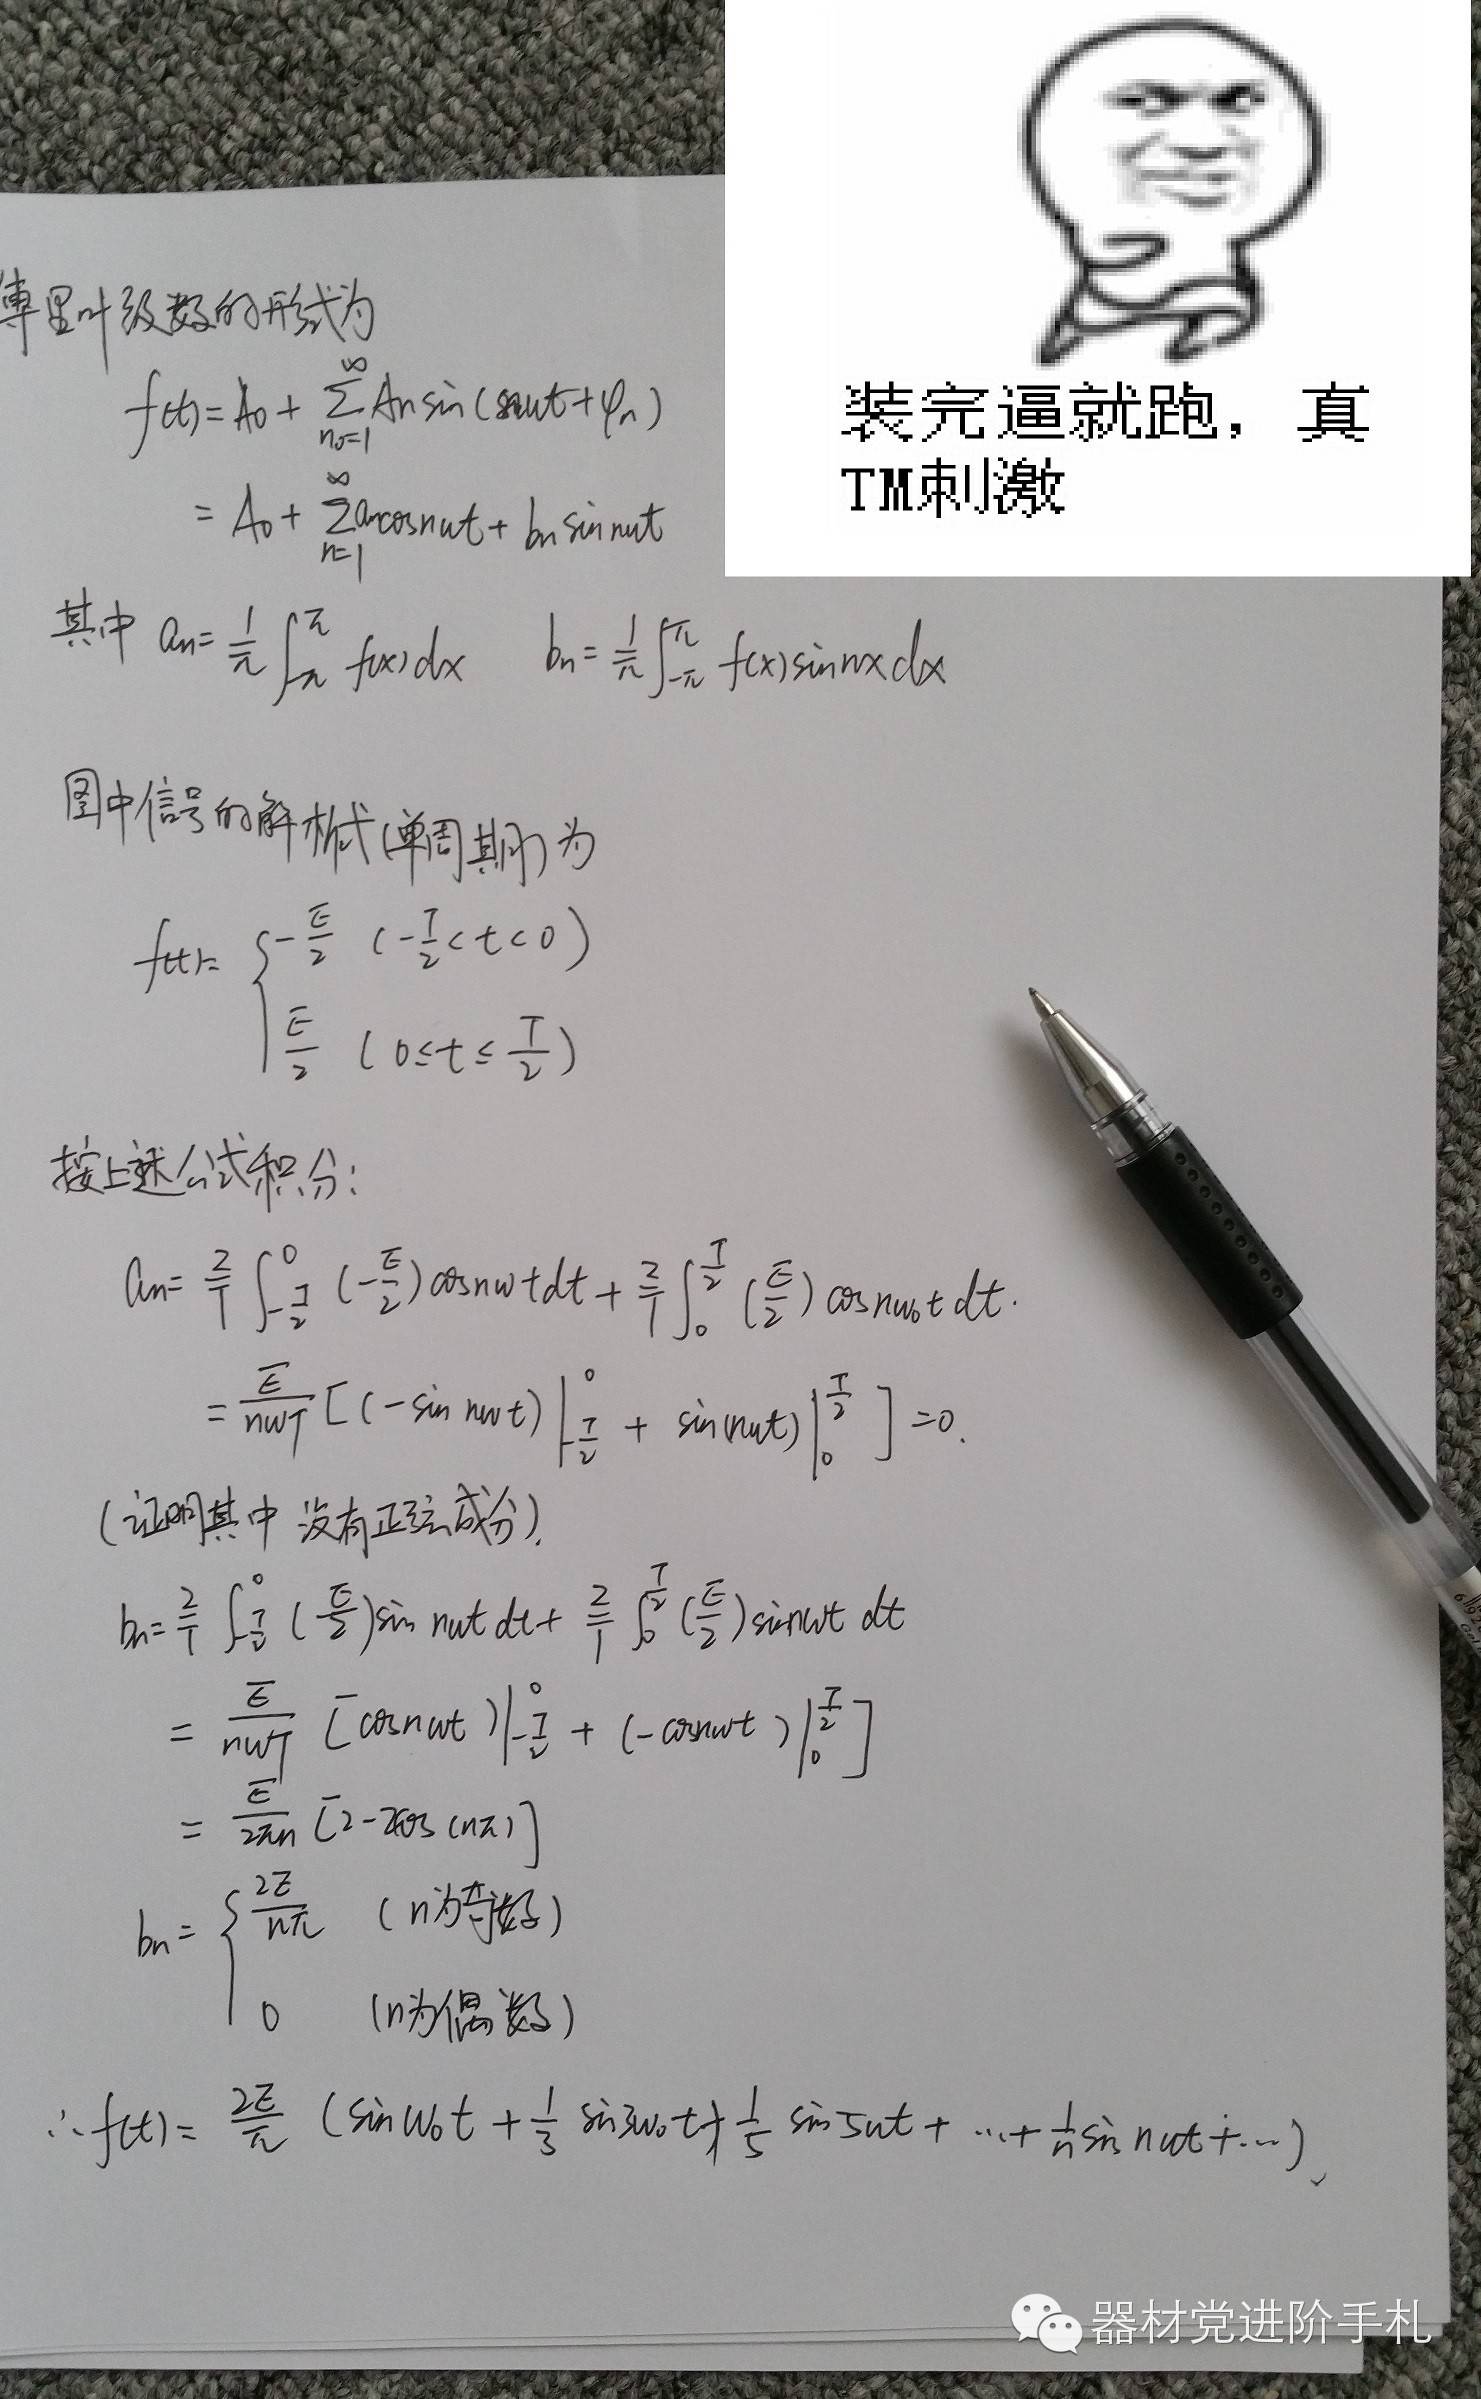 装完逼就跑，真
TM刺激
傅里叶级数的形式为
f(t)=A₀+∑_{n₀=1}^{∞}Aₙsin(nωt+φₙ)
=A₀+∑_{n=1}^{∞}aₙcosnωt+bₙsinnωt
其中 aₙ=1/π∫_{-π}^{π}f(x)dx bₙ=1/π∫_{-π}^{π}f(x)sinnxdx
图中信号的解析式(单周期内)为
f(t)={-E/2 (-T/2<t<0)
E/2 (0≤t≤T/2)
按上述公式积分:
aₙ=2/T∫_{-T/2}^{0}(-E/2)cosnωtdt+2/T∫_{0}^{T/2}(E/2)cosnω₀tdt.
=E/nωT[(-sinnωt)|_{-T/2}^{0}+sin(nωt)|_{0}^{T/2}]=0.
(证明其中没有正弦成分).
bₙ=2/T∫_{-T/2}^{0}(-E/2)sinnωtdt+2/T∫_{0}^{T/2}(E/2)sinnωtdt
=E/nωT[cosnωt)|_{-T/2}^{0}+(-cosnωt)|_{0}^{T/2}]
=E/2πn[2-2cos(nπ)]
bₙ={2E/nπ (n为奇数)
0 (n为偶数)
∴f(t)=2E/π(sinω₀t+1/3sin3ω₀t+1/5sin5ωt+…+1/n sinnωt+…)
器材党进阶手札